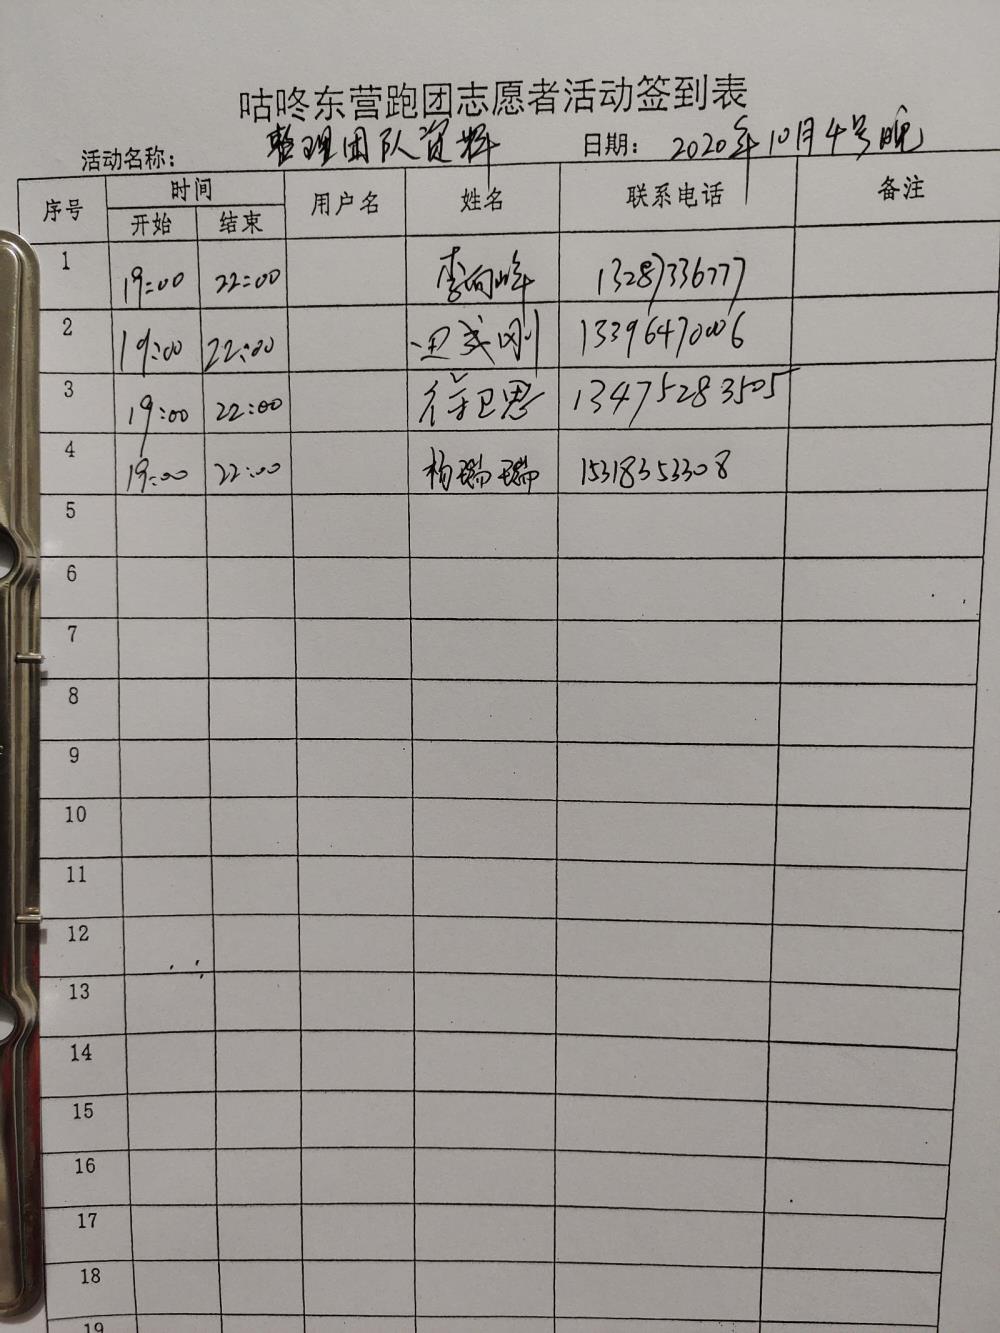 咕咚东营跑团志愿者活动签到表
活动名称: 整理团队资料 日期: 2020年10月4号晚
序号 时间 用户名 姓名 联系电话 备注
开始 结束
1 19:00 22:00 李向峰 13287336777
2 19:00 22:00 13396470006
3 19:00 22:00 13475283505
4 19:00 22:00 杨瑞瑞 15318353308
5
6
7
8
9
10
11
12
13
14
15
16
17
18
19